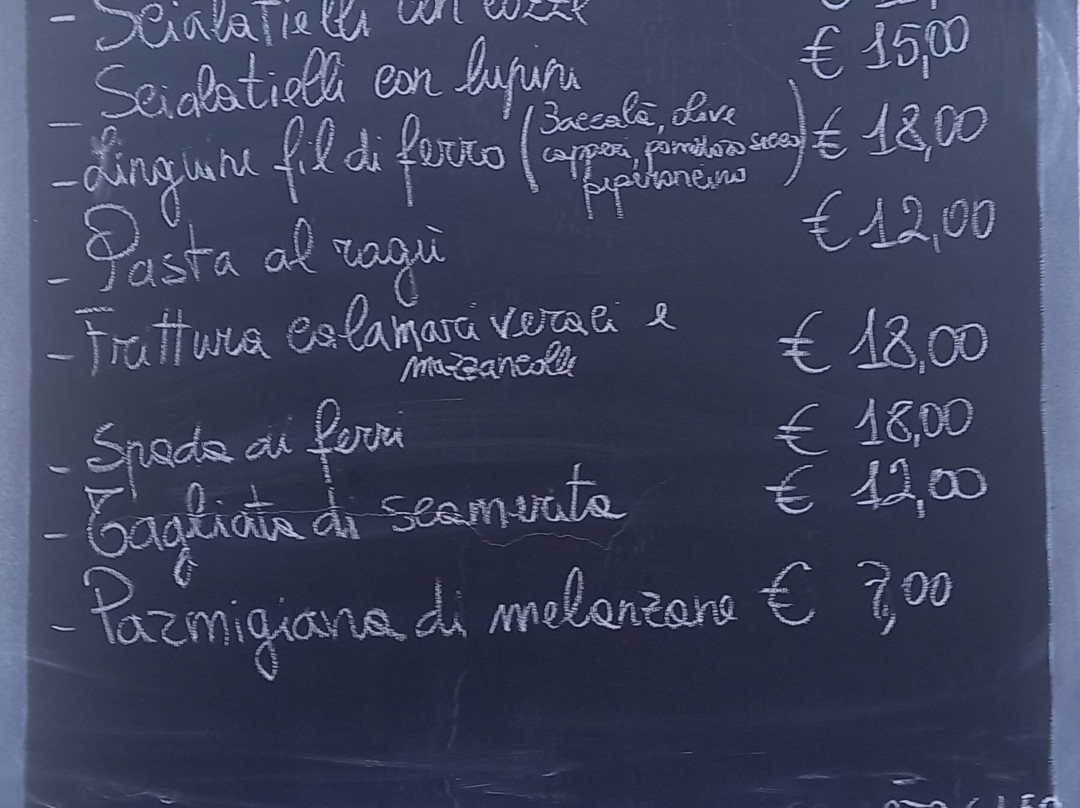 - Scialatielli con cozze
- Scialatielli con lupini € 15,00
- Linguine fil di ferro (Baccalà, olive
capperi, pomodoro secco
peperoncino) € 18,00
- Pasta al ragù € 12,00
- Frittura calamari veraci e
mazzancolle € 18,00
- Spada ai ferri € 18,00
- Tagliata di scamerita € 12,00
- Parmigiana di melanzane € 7,00